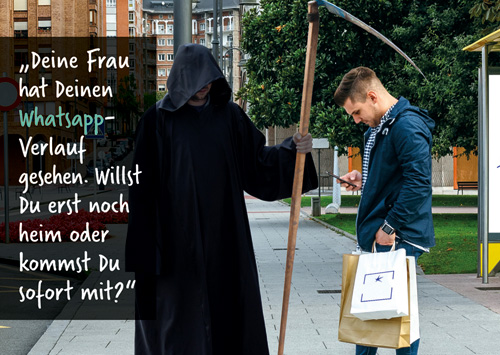 „Deine Frau
hat Deinen
Whatsapp-
Verlauf
gesehen. Willst
Du erst noch
heim oder
kommst Du
sofort mit?“